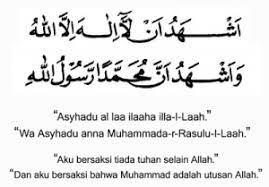 اَشْهَدُ اَنْ لَآ اِلٰهَ اِلَّا اللهُ
وَاَشْهَدُ اَنَّ مُحَمَّدًا رَسُوْلُ اللهِ
“Asyhadu al laa ilaaha illa-l-Laah.”
“Wa Asyhadu anna Muhammada-r-Rasulu-l-Laah.”
“Aku bersaksi tiada tuhan selain Allah.”
“Dan aku bersaksi bahwa Muhammad adalah utusan Allah.”